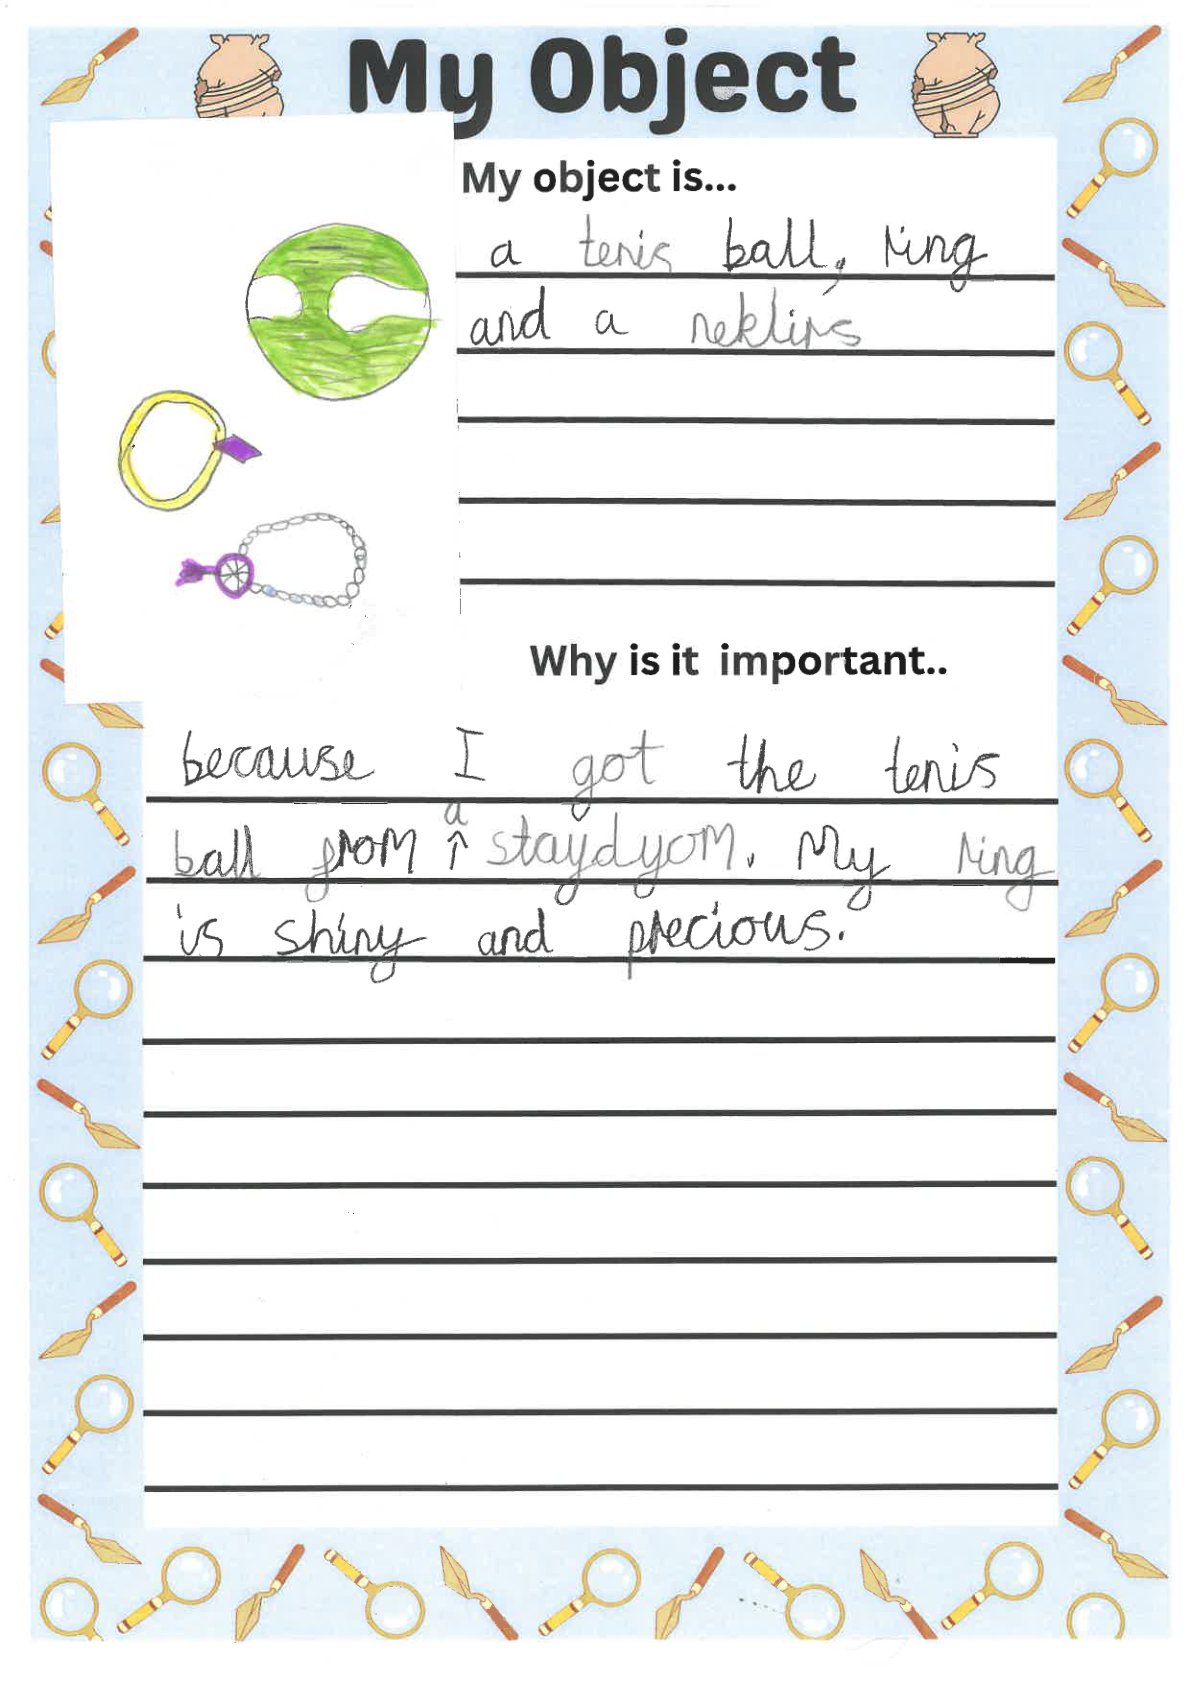 My Object
My object is...
a tenis ball, ring
and a neklirs
Why is it important..
because I got the tenis
a
ball from ↑ staydyom. My ring
is shiny and precious.